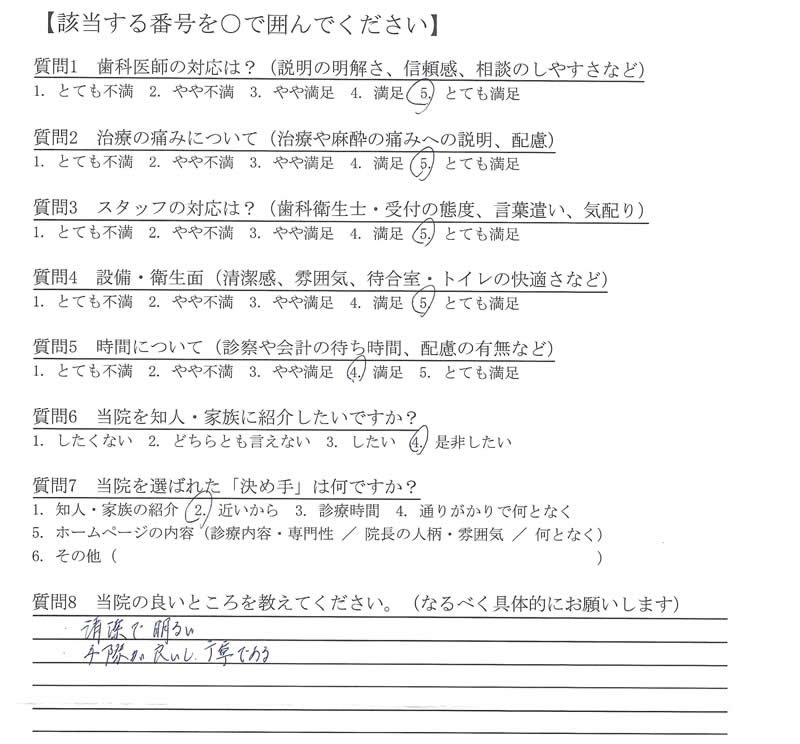 【該当する番号を○で囲んでください】
質問1　歯科医師の対応は？（説明の明解さ、信頼感、相談のしやすさなど）
1. とても不満　2. やや不満　3. やや満足　4. 満足　5. とても満足
質問2　治療の痛みについて（治療や麻酔の痛みへの説明、配慮）
1. とても不満　2. やや不満　3. やや満足　4. 満足　5. とても満足
質問3　スタッフの対応は？（歯科衛生士・受付の態度、言葉遣い、気配り）
1. とても不満　2. やや不満　3. やや満足　4. 満足　5. とても満足
質問4　設備・衛生面（清潔感、雰囲気、待合室・トイレの快適さなど）
1. とても不満　2. やや不満　3. やや満足　4. 満足　5. とても満足
質問5　時間について（診察や会計の待ち時間、配慮の有無など）
1. とても不満　2. やや不満　3. やや満足　4. 満足　5. とても満足
質問6　当院を知人・家族に紹介したいですか？
1. したくない　2. どちらとも言えない　3. したい　4. 是非したい
質問7　当院を選ばれた「決め手」は何ですか？
1. 知人・家族の紹介　2. 近いから　3. 診療時間　4. 通りがかりで何となく
5. ホームページの内容（診療内容・専門性 ／ 院長の人柄・雰囲気 ／ 何となく）
6. その他（　　　　　　　　　　）
質問8　当院の良いところを教えてください。（なるべく具体的にお願いします）
・清潔で明るい
・手際が良いし、丁寧である